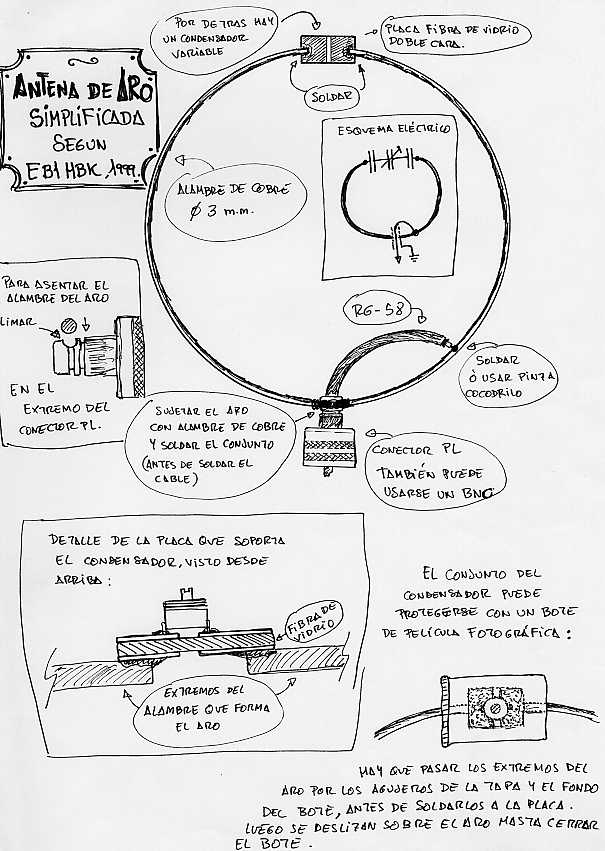 ANTENA DE ARO
SIMPLIFICADA
SEGUN
EB1 HBK, 1999.
POR DETRAS HAY
UN CONDENSADOR
VARIABLE
PLACA FIBRA DE VIDRIO
DOBLE CARA.
SOLDAR
ESQUEMA ELÉCTRICO
ALAMBRE DE COBRE
Ø 3 m.m.
PARA ASENTAR EL
ALAMBRE DEL ARO
LIMAR
EN EL
EXTREMO DEL
CONECTOR PL.
RG-58
SOLDAR
Ò USAR PINZA
COCODRILO
SUJETAR EL ARO
CON ALAMBRE DE COBRE
Y SOLDAR EL CONJUNTO
(ANTES DE SOLDAR EL
CABLE)
CONECTOR PL
TAMBIÉN PUEDE
USARSE UN BNC
DETALLE DE LA PLACA QUE SOPORTA
EL CONDENSADOR, VISTO DESDE
ARRIBA:
FIBRA DE
VIDRIO
EXTREMOS DEL
ALAMBRE QUE FORMA
EL ARO
EL CONJUNTO DEL
CONDENSADOR PUEDE
PROTEGERSE CON UN BOTE
DE PELÍCULA FOTOGRÁFICA:
HAY QUE PASAR LOS EXTREMOS DEL
ARO POR LOS AGUJEROS DE LA TAPA Y EL FONDO
DEL BOTE, ANTES DE SOLDARLOS A LA PLACA.
LUEGO SE DESLIZAN SOBRE EL ARO HASTA CERRAR
EL BOTE.